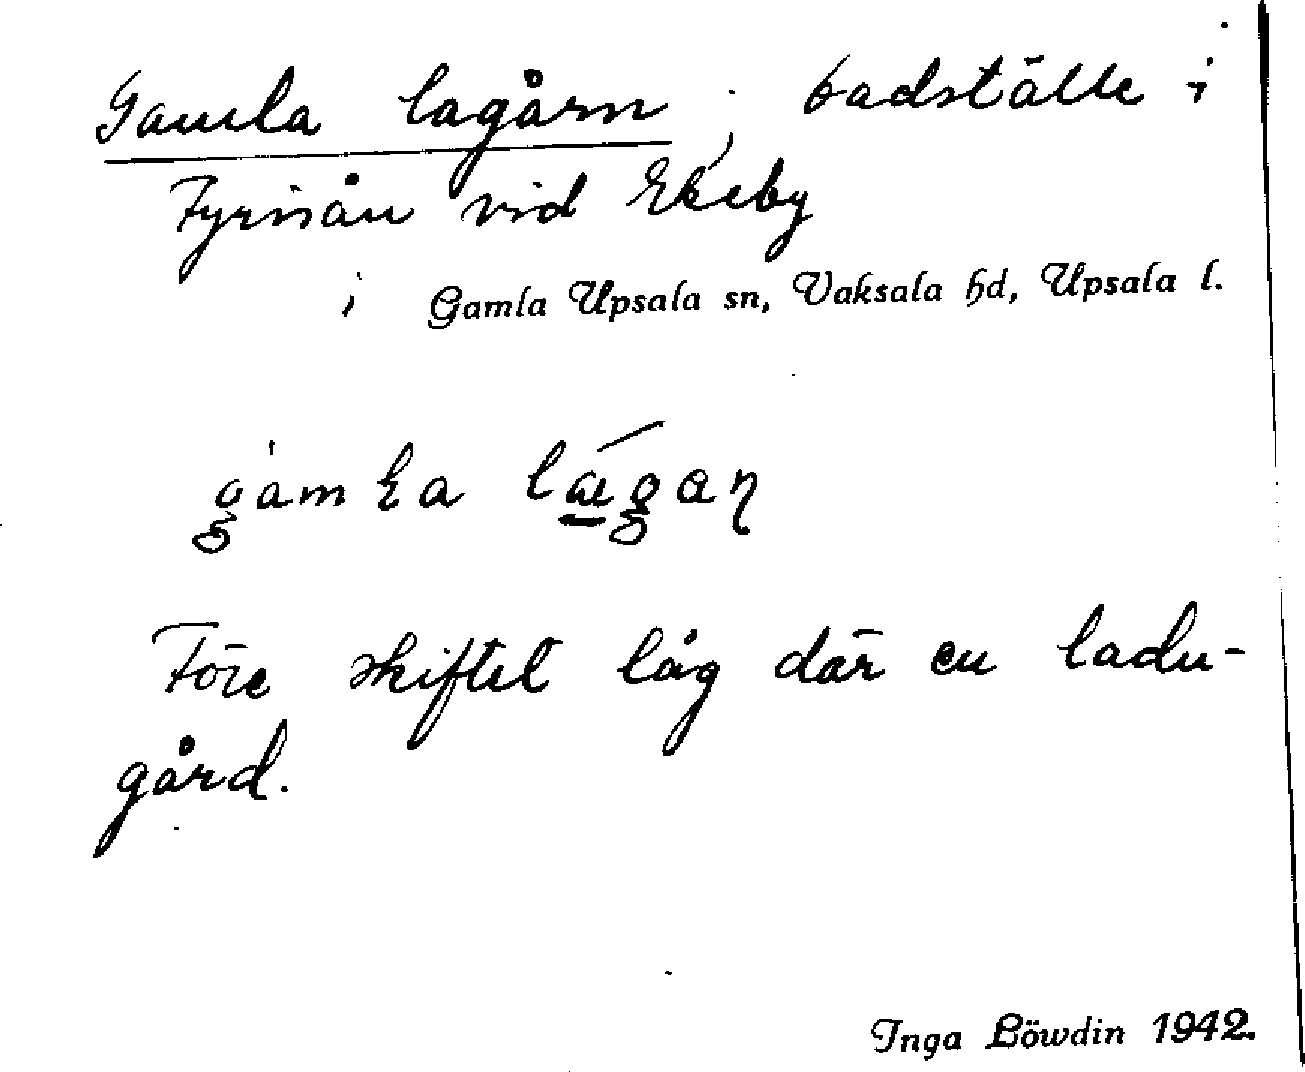 Gamla lagårn, badställe i
Fyrisån vid Ekeby
i Gamla Upsala sn, Vaksala hd, Upsala l.
gamła lægaɳ
Före skiftet låg där en ladu-
gård.
Inga Löwdin 1942.